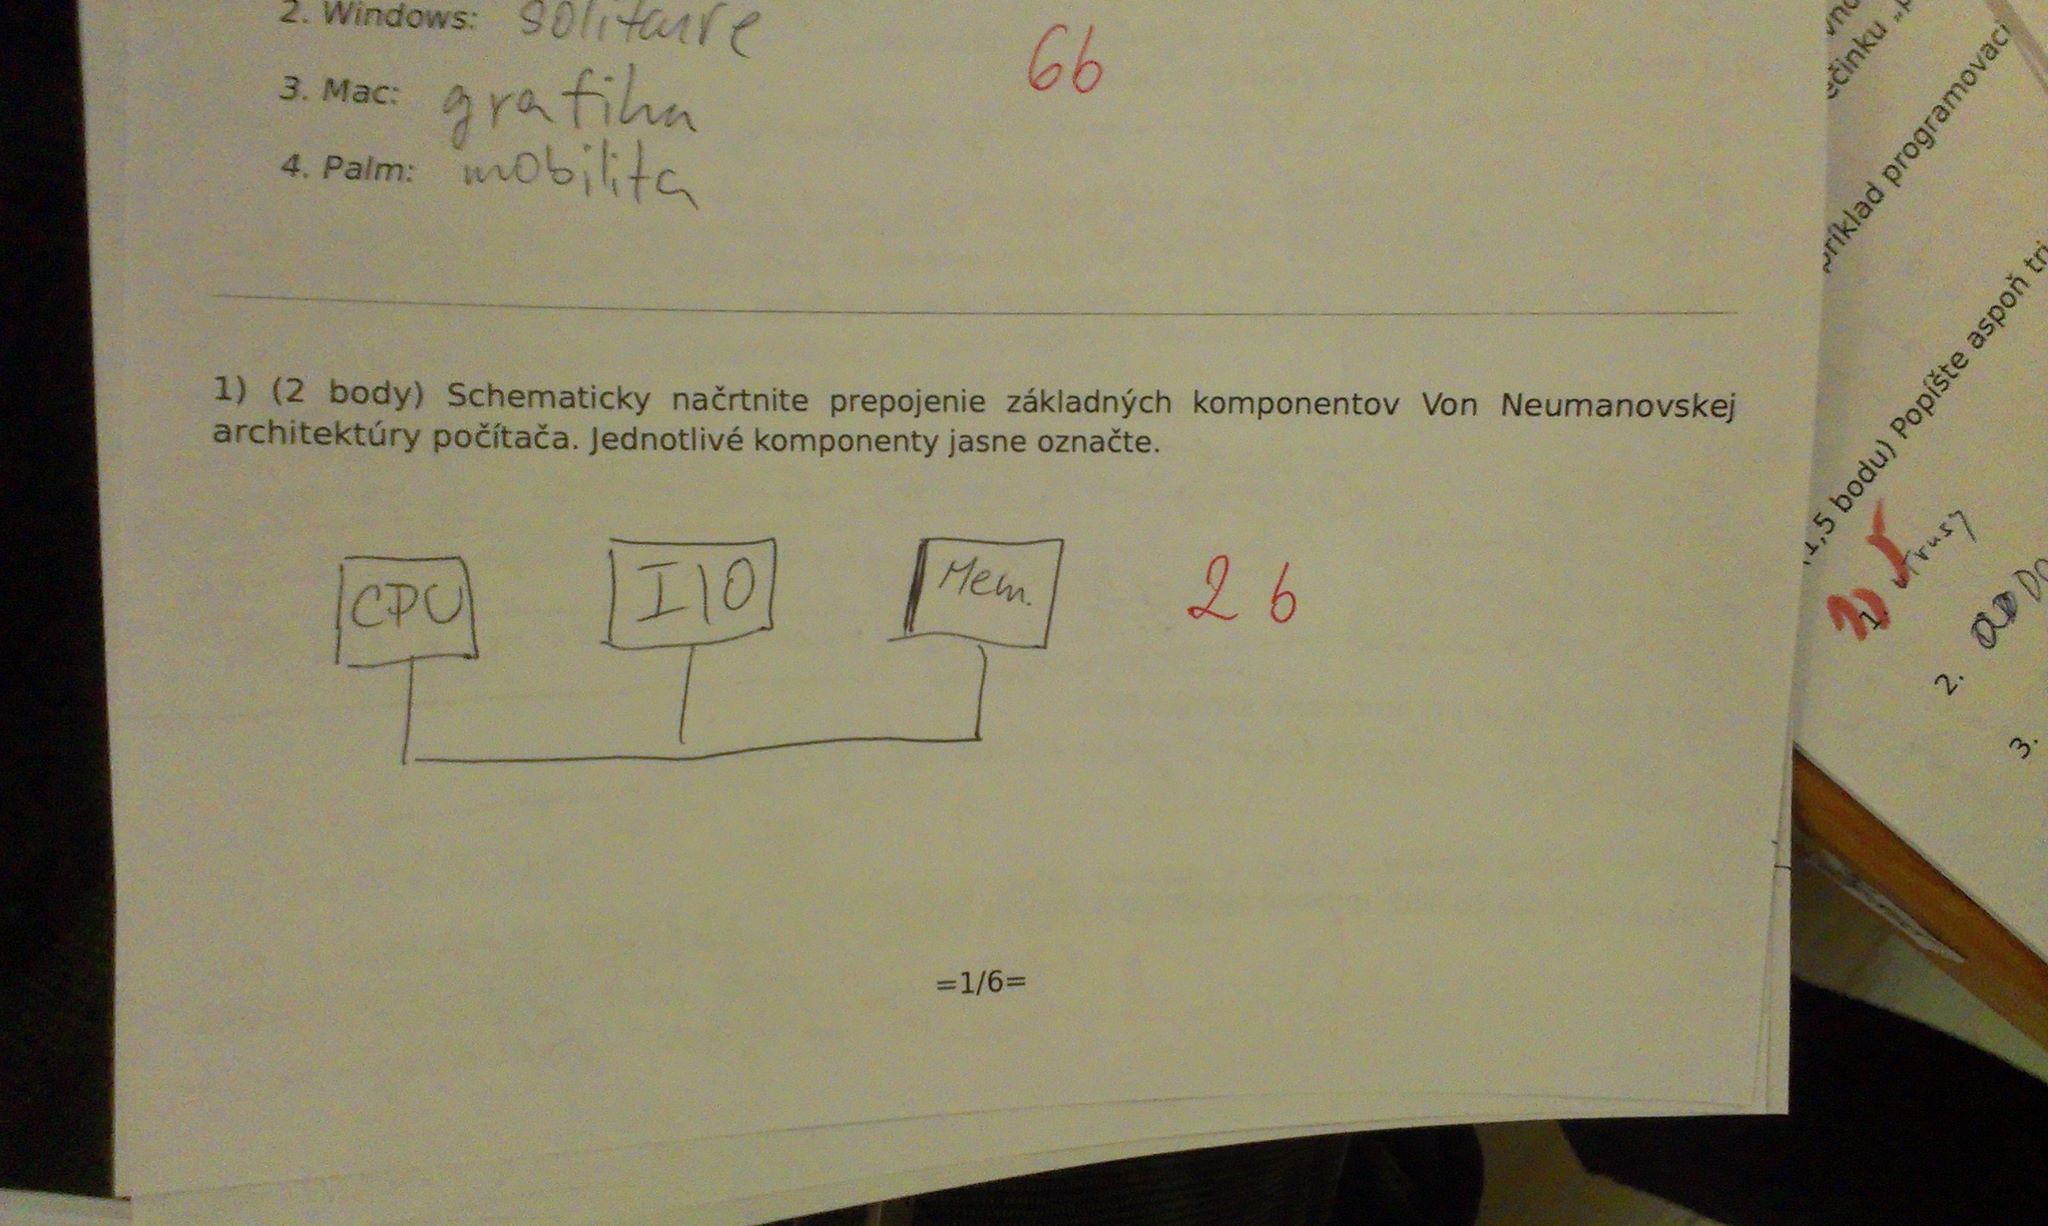 2. Windows: solitaire
6b
3. Mac: grafika
4. Palm: mobilita
1) (2 body) Schematicky načrtnite prepojenie základných komponentov Von Neumanovskej
architektúry počítača. Jednotlivé komponenty jasne označte.
CPU I/O Mem. 2 b
=1/6=
ečinku
príklad programovací
1,5 bodu) Popíšte aspoň tri
1. vírusy
2.
3.